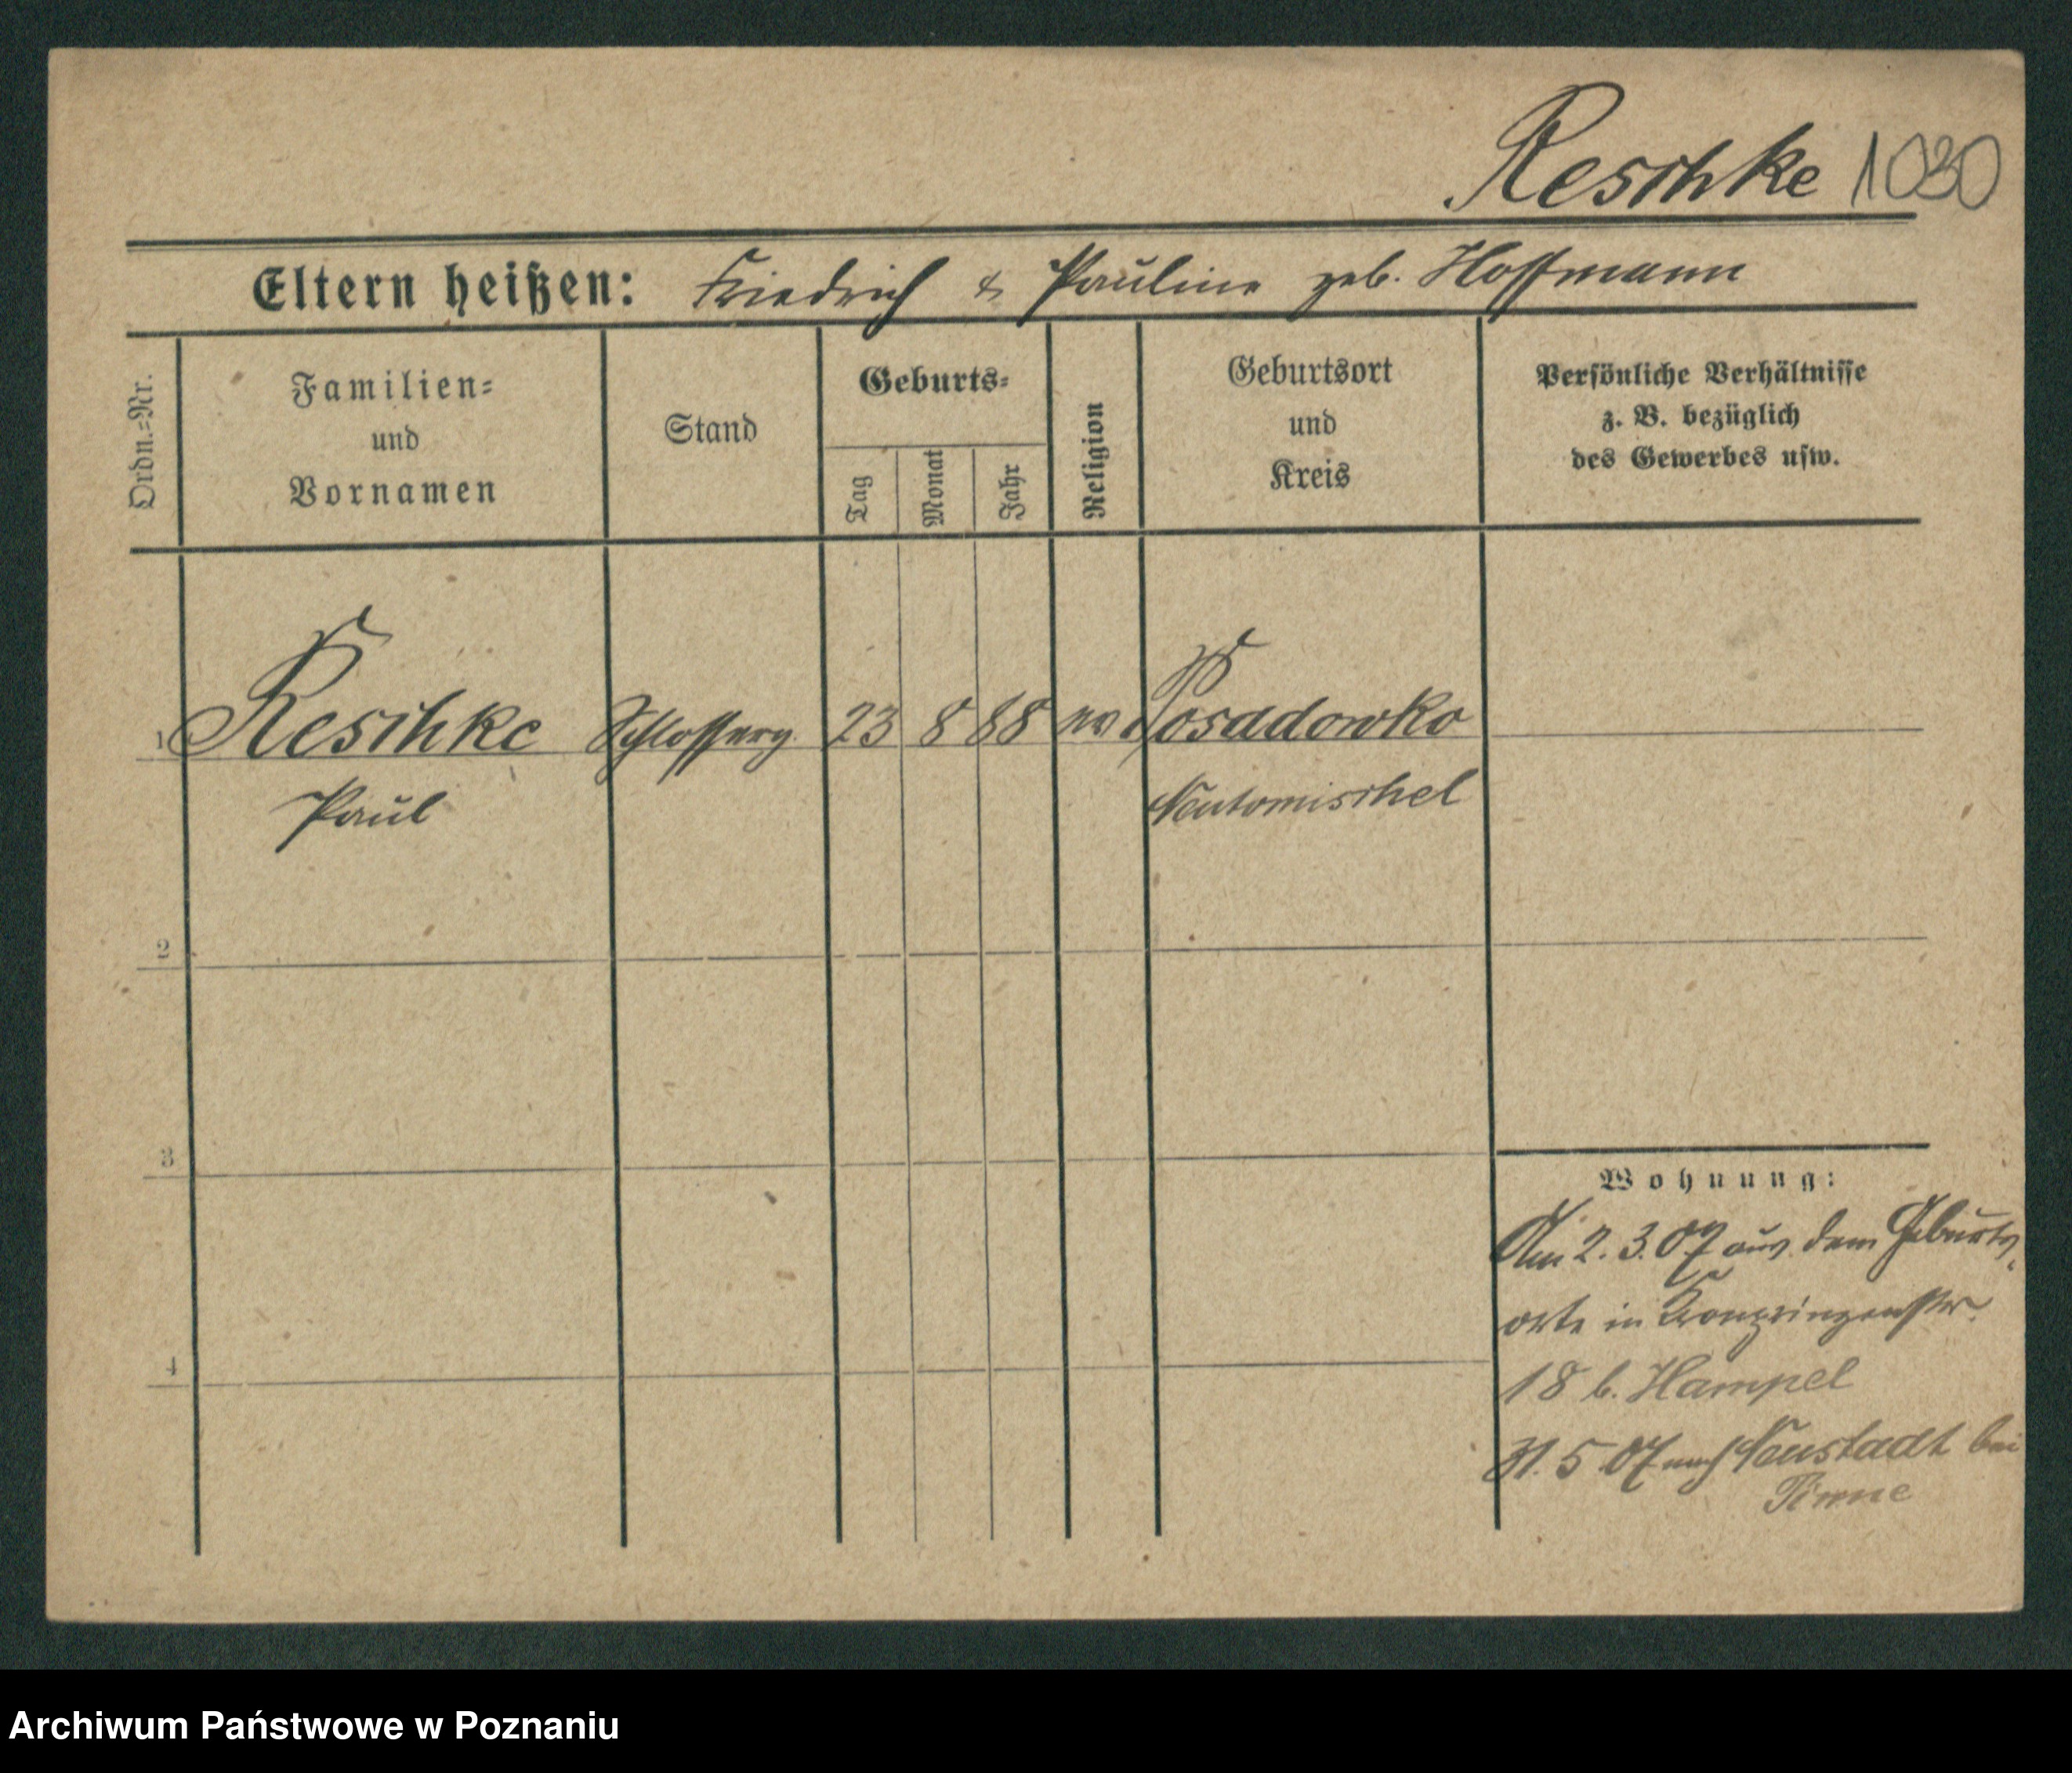 Reschke 1030
Eltern heißen: Friedrich & Pauline geb. Hoffmann
Ordn.=Nr.
Familien=
und
Vornamen
Stand
Geburts=
Tag
Monat
Jahr
Religion
Geburtsort
und
Kreis
Persönliche Verhältnisse
z. B. bezüglich
des Gewerbes usw.
1 Reschke Schlosserg. 23 8 88 ev Posadowko
Paul Neutomischel
2
3
Wohnung:
Am 2. 3. 07 aus dem Geburts
orte in Kronprinzenstr.
4
18 b. Hampel
31. 5 07 nach Neustadt bei
Pinne
Archiwum Państwowe w Poznaniu